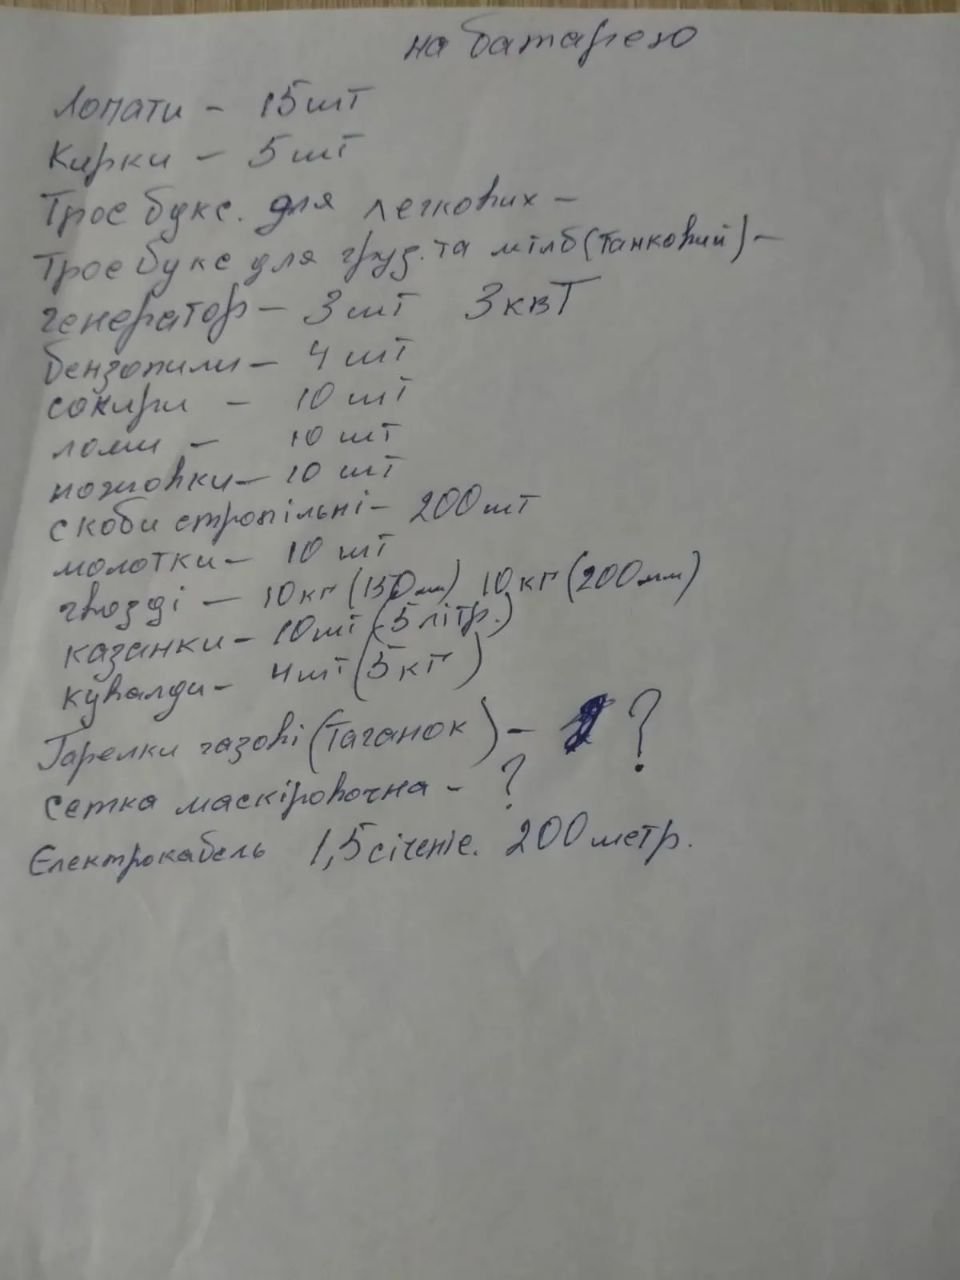 на батарею
Лопати - 15 шт
Кирки - 5 шт
Трос букс. для легкових -
Трос букс для груз. та мтлб (танковий) -
генератор - 3 шт 3 квт
бензопили - 4 шт
сокири - 10 шт
ломи - 10 шт
ножовки - 10 шт
скоби стропільні - 200 шт
молотки - 10 шт
гвозді - 10 кг (150 мм) 10 кг (200 мм)
казанки - 10 шт (5 літр.)
кувалди - 4 шт (5 кг)
Горелки газові (таганок) - ?
сетка маскіровочна - ?
Єлектрокабель 1,5 січеніє. 200 метр.